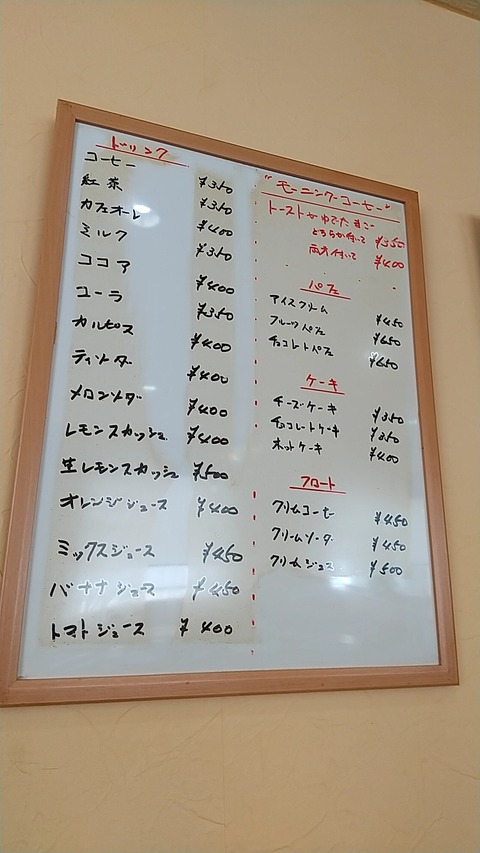 ドリンク
コーヒー ¥350
紅茶 ¥350
カフェオーレ ¥400
ミルク ¥350
ココア ¥400
コーラ ¥350
カルピス ¥400
ティソーダ ¥400
メロンソーダ ¥400
レモンスカッシュ ¥400
生レモンスカッシュ ¥500
オレンジジュース ¥400
ミックスジュース ¥450
バナナジュース ¥450
トマトジュース ¥400
"モーニングコーヒー"
トーストかゆでたまご
どちらか付いて ¥350
両方付いて ¥400
パフェ
アイスクリーム ¥450
フルーツパフェ ¥650
チョコレートパフェ ¥650
ケーキ
チーズケーキ ¥350
チョコレートケーキ ¥350
ホットケーキ ¥400
フロート
クリームコーヒー ¥450
クリームソーダ ¥450
クリームジュース ¥500